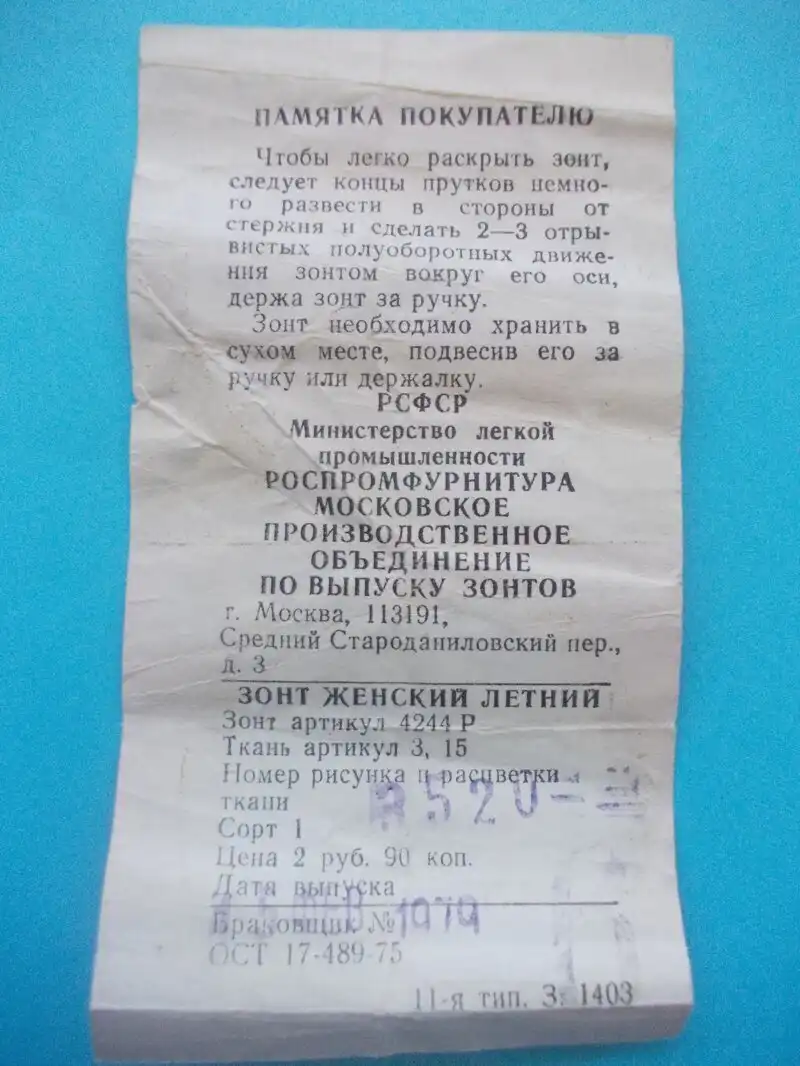 ПАМЯТКА ПОКУПАТЕЛЮ
Чтобы легко раскрыть зонт,
следует концы прутков немно-
го развести в стороны от
стержня и сделать 2—3 отры-
вистых полуоборотных движе-
ния зонтом вокруг его оси,
держа зонт за ручку.
Зонт необходимо хранить в
сухом месте, подвесив его за
ручку или держалку.
РСФСР
Министерство легкой
промышленности
РОСПРОМФУРНИТУРА
МОСКОВСКОЕ
ПРОИЗВОДСТВЕННОЕ
ОБЪЕДИНЕНИЕ
ПО ВЫПУСКУ ЗОНТОВ
г. Москва, 113191,
Средний Староданиловский пер.,
д. 3
ЗОНТ ЖЕНСКИЙ ЛЕТНИЙ
Зонт артикул 4244 Р
Ткань артикул 3, 15
Номер рисунка и расцветки
ткани 520
Сорт 1
Цена 2 руб. 90 коп.
Дата выпуска
1979
Браковщик №
ОСТ 17-489-75
11-я тип. З. 1403